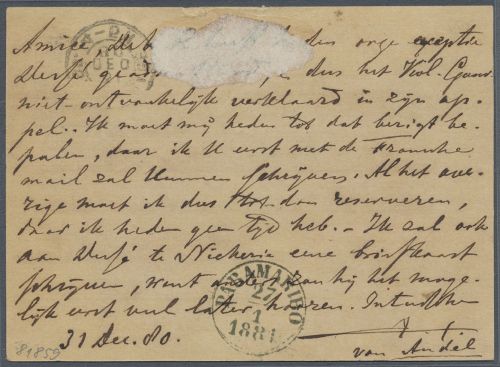 Amice, Het
Versé dus het Kol. Gouv.
niet-ontvankelijk verklaard in zijn ap-
pel. - Ik moet mij heden tot dat berigt be-
palen, daar ik U eerst met de Fransche
mail zal kunnen schrijven. Al het ove-
rige moet ik dus tot dan reserveren,
daar ik heden geen tijd heb. - Ik zal ook
aan Versé te Nickerie eene briefkaart
schrijven, want anders kan hij het moge-
lijk eerst veel later hooren.
PARAMARIBO
22
1
1881
31 Dec. 80.
van Andel
81859